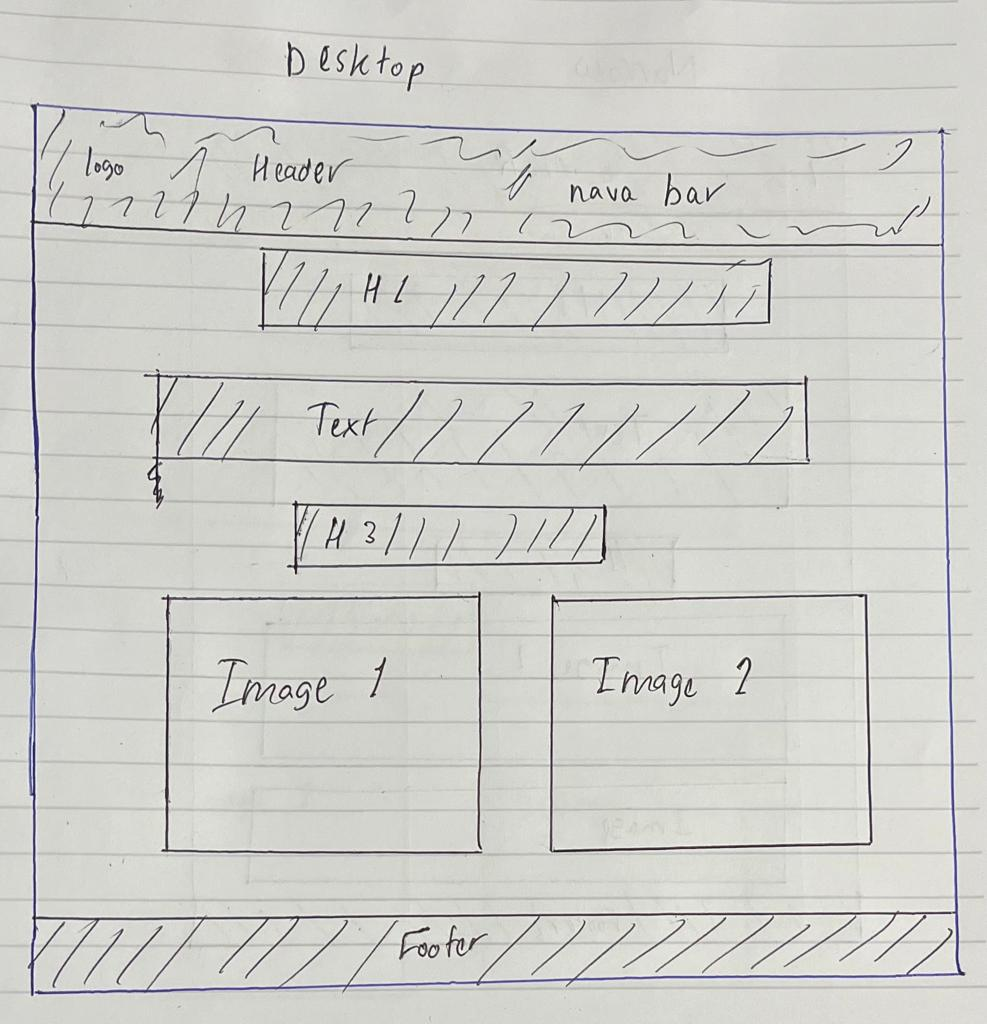 Desktop
logo Header nava bar
H1
Text
H3
Image 1 Image 2
Footer